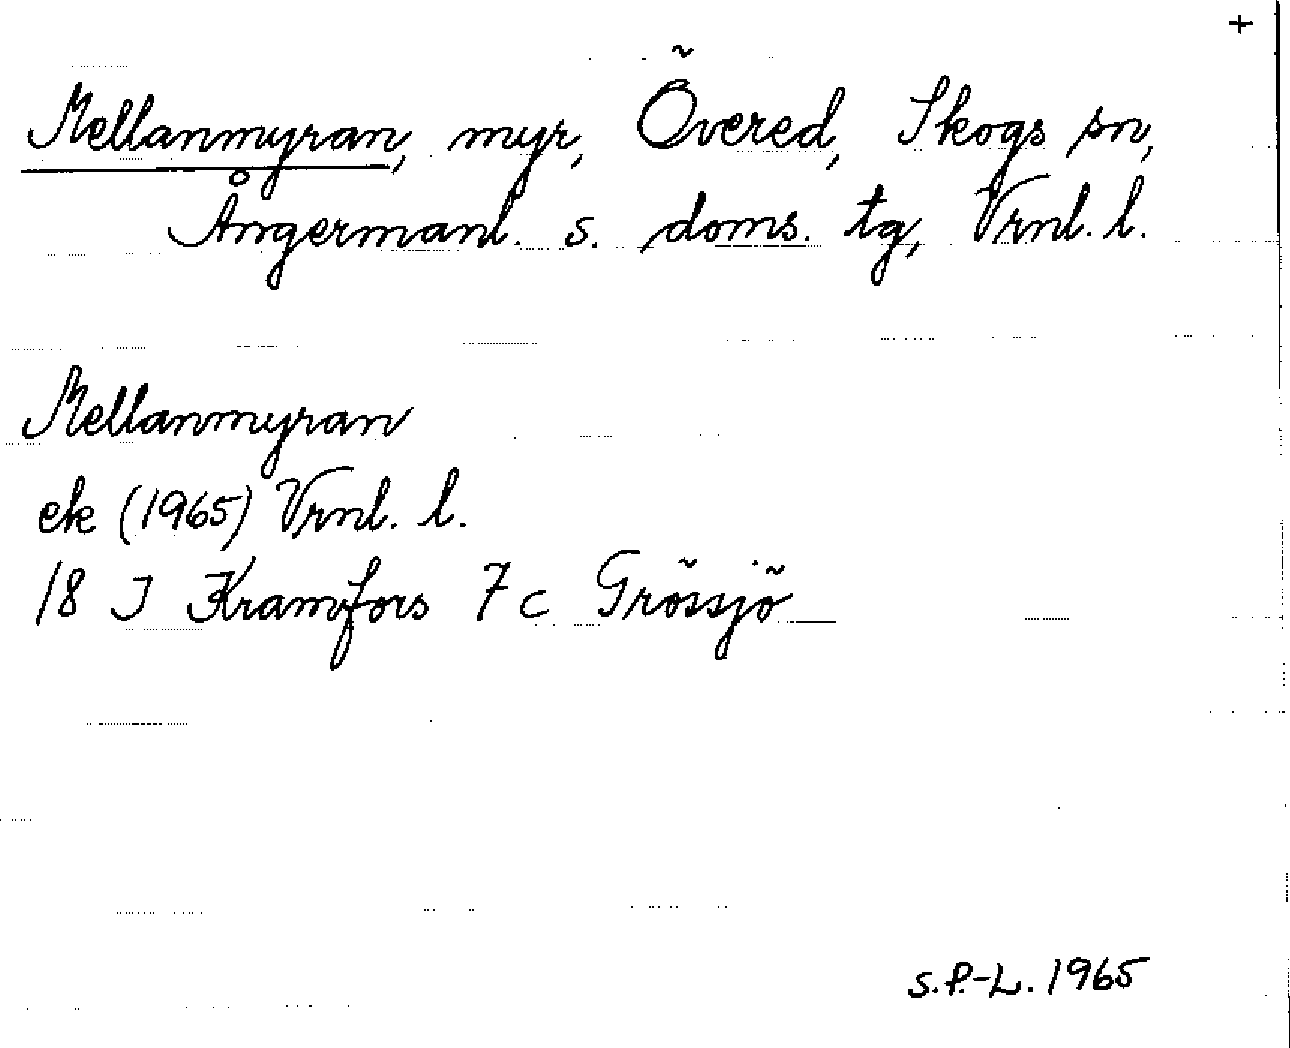 +
Mellanmyran, myr, Övered, Skogs sn,
Ångermanl. s. doms. tg, Vrnl. l.
Mellanmyran
ek (1965) Vrnl. l.
18 I Kramfors 7 c Grössjö
S.P.-L. 1965